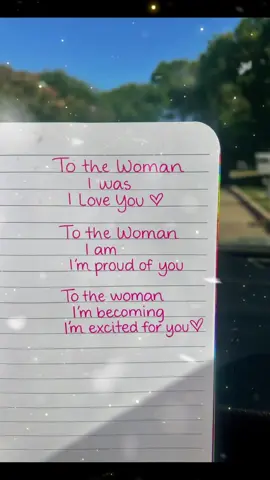 To the Woman
I was
I Love You ♡
To the Woman
I am
I'm proud of you
To the woman
I'm becoming
I'm excited for you ♡